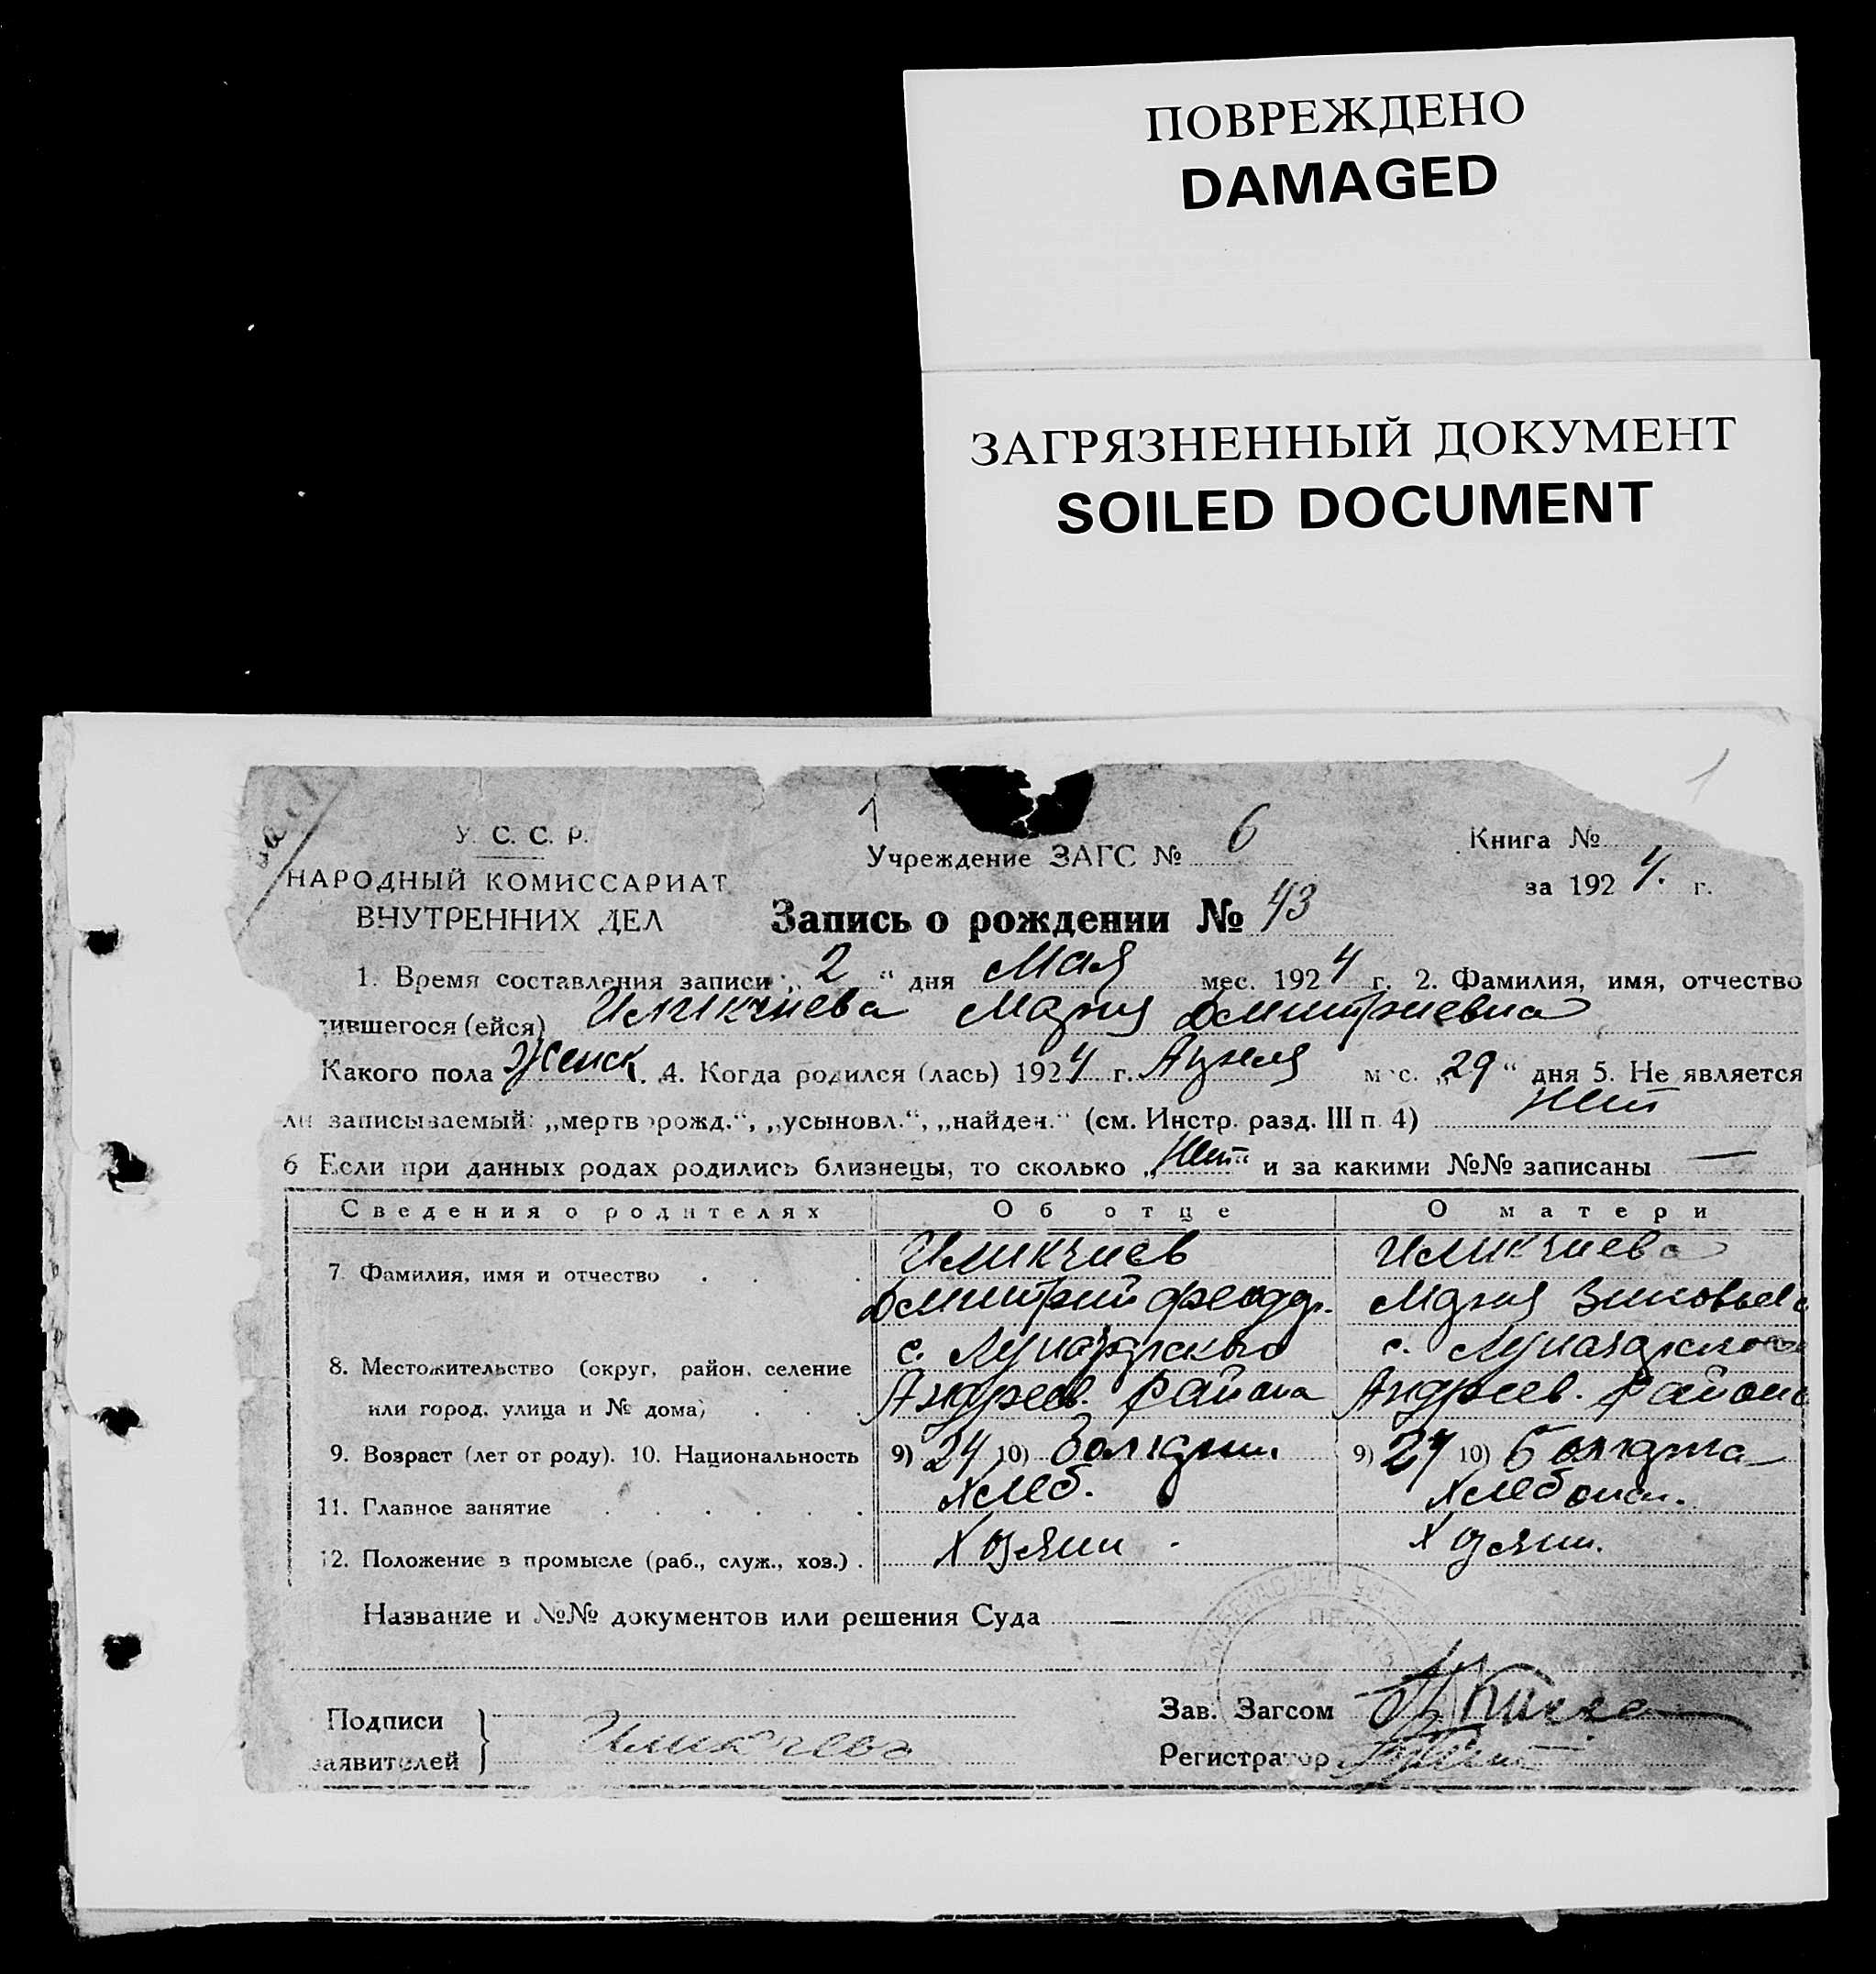 ПОВРЕЖДЕНО
DAMAGED
ЗАГРЯЗНЕННЫЙ ДОКУМЕНТ
SOILED DOCUMENT
1
1
У. С. С. Р.
НАРОДНЫЙ КОМИССАРИАТ
ВНУТРЕННИХ ДЕЛ
Учреждение ЗАГС № 6
Книга №
за 1924. г.
Запись о рождении № 43
1. Время составления записи „2“ дня Мая мес. 1924 г. 2. Фамилия, имя, отчество
ившегося (ейся) Иликчиева Мария Дмитриевна
Какого пола Женск. 4. Когда родился (лась) 1924 г. Апреля мес. „29“ дня 5. Не является
ли записываемый: „мертворожд.“, „усыновл.“, „найден.“ (см. Инстр. разд. III п. 4) Нет
6 Если при данных родах родились близнецы, то сколько „Нет“ и за какими №№ записаны —
Сведения о родителях Об отце О матери
7. Фамилия, имя и отчество Иликчиев Иликчиева
Дмитрий Феодор. Мария Зиновьев
8. Местожительство (округ, район, селение с. Луначарское с. Луначарское
или город, улица и № дома) Андреев. района Андреев. района
9. Возраст (лет от роду). 10. Национальность 9) 24 10) Болгарин. 9) 24 10) Болгарка
11. Главное занятие Хлеб. Хлебопаш.
12. Положение в промысле (раб., служ., хоз.) Хозяин Хозяин.
Название и №№ документов или решения Суда —
Подписи
заявителей } Иликчева
Зав. Загсом
Регистратор